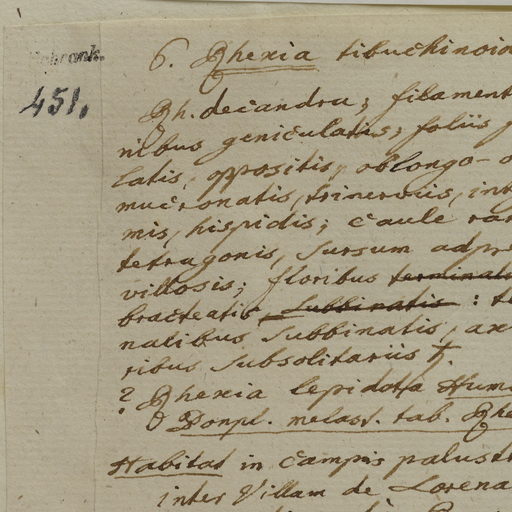 Schrank.
451.
6. Rhexia tibuchinoid
Rh. decandra; filament
nibus geniculatis; foliis
latis, oppositis, oblongo-o
mucronatis, trinerviis, int
mis, hispidis; caule ram
tetragonis, sursum adpre
villosis; floribus terminal
bracteatis subbinatis : te
nalibus subbinatis, ax
ribus subsolitariis ♄.
? Rhexia lepidota Humb
& Bonpl. melast. tab. Rhe
Habitat in campis palust
inter Villam de Lorena